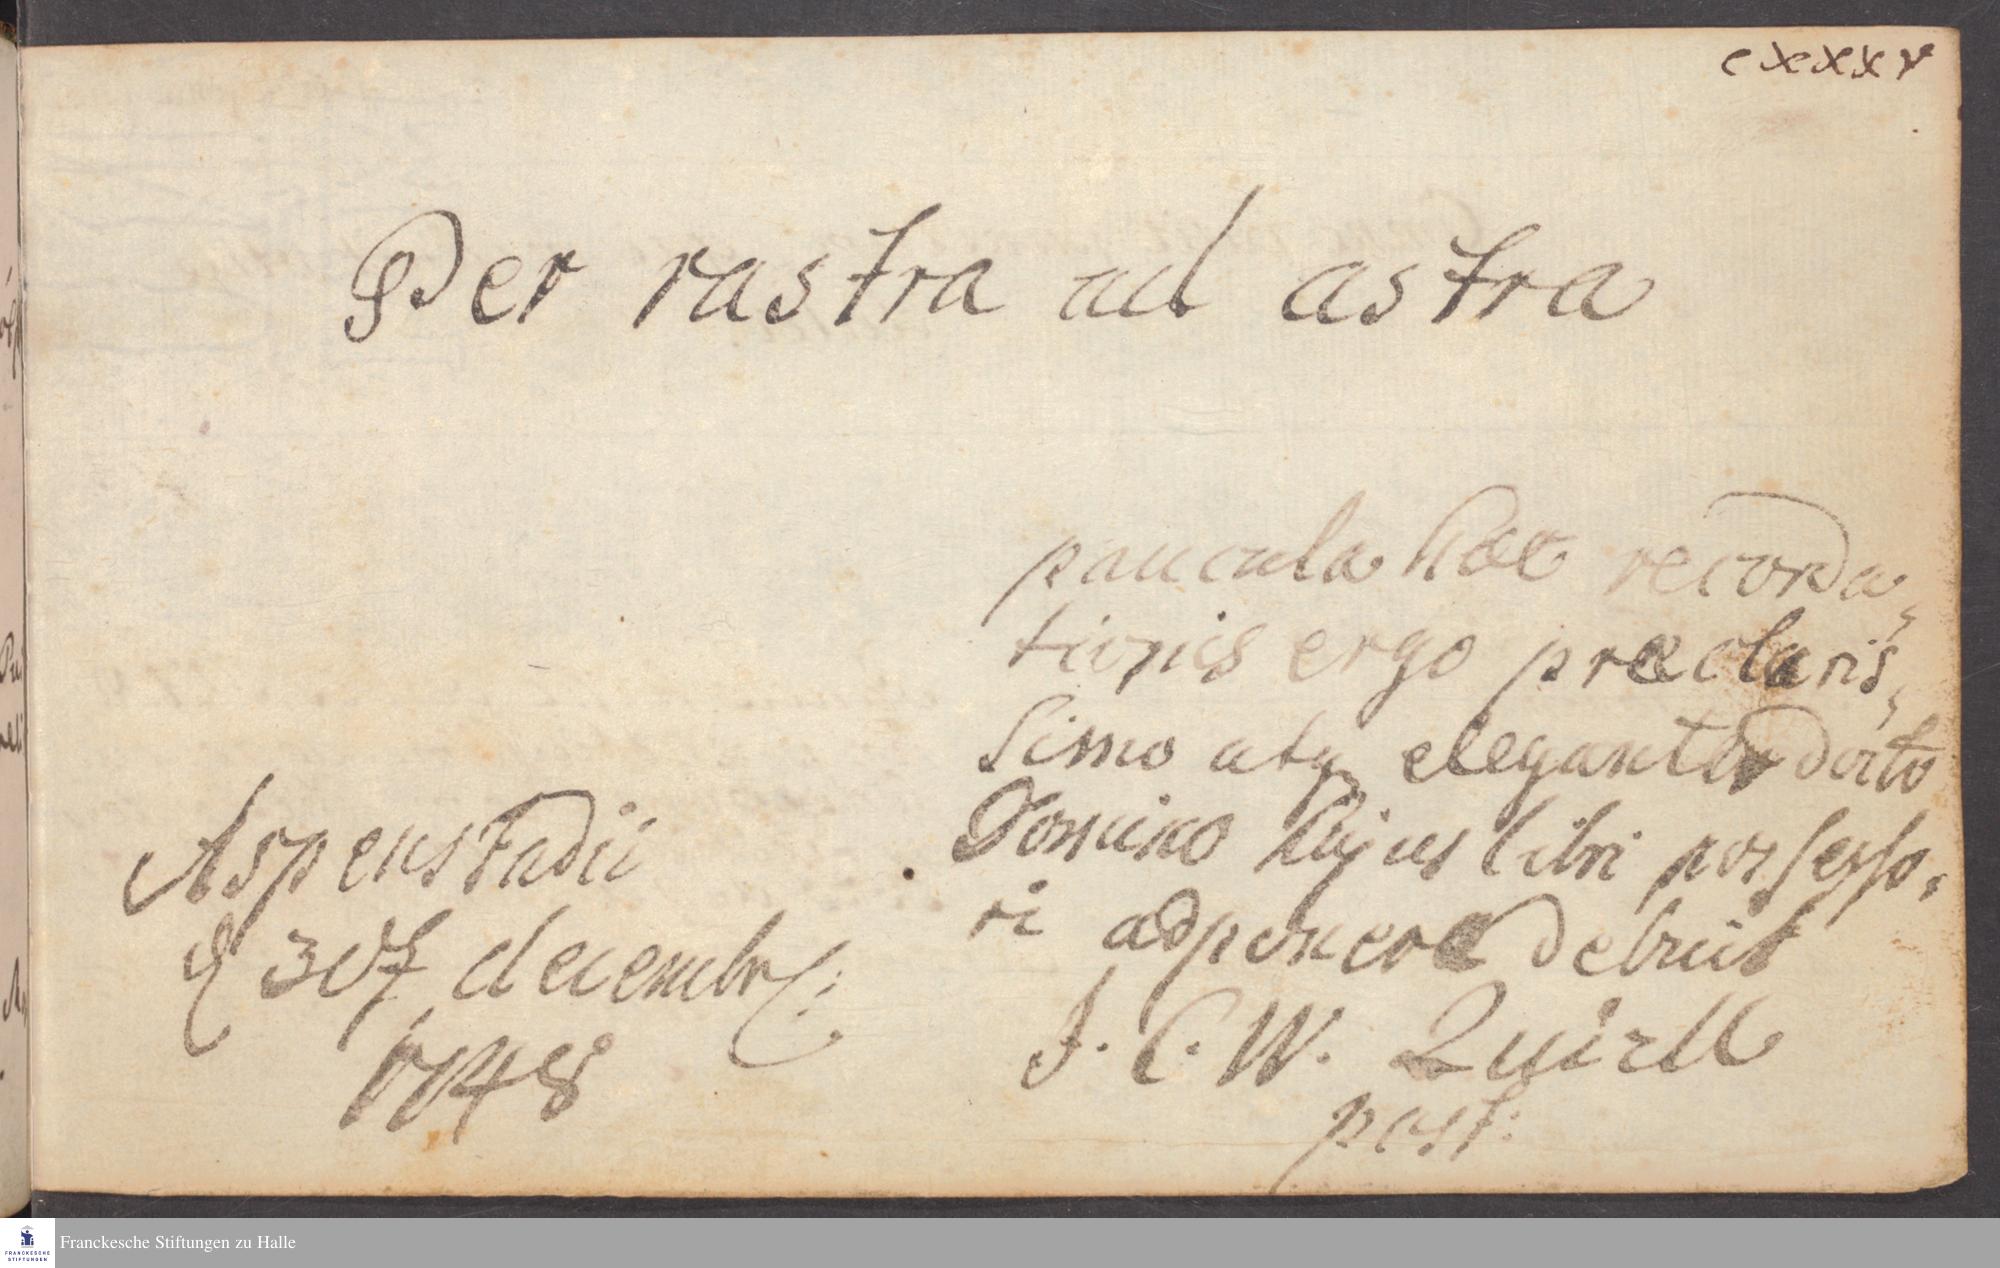 cxxxv
Per rastra ad astra
paucula hæc recorda,
tionis ergo præclaris,
simo atq eleganter docto
Domino hujus libri possesso,
ri adponere debuit
J. C. W. Quirll
past:
Aspenstadii
d 30 decembr:
1748
FRANCKESCHE
STIFTUNGEN
Franckesche Stiftungen zu Halle